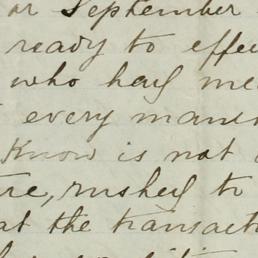 or September
ready to effe
who has me
every mann
Know is not
re, rushed to
at the transact